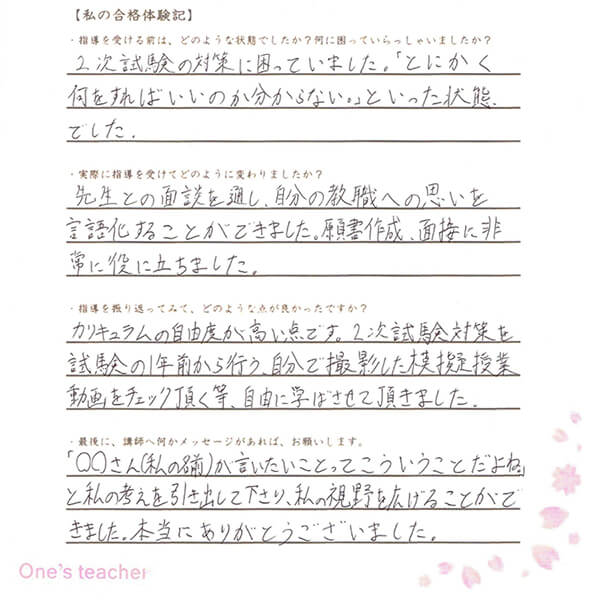 【私の合格体験記】
・指導を受ける前は、どのような状態でしたか？何に困っていらっしゃいましたか？
2次試験の対策に困っていました。「とにかく
何をすればいいのか分からない。」といった状態
でした.
・実際に指導を受けてどのように変わりましたか？
先生との面談を通し、自分の教職への思いを
言語化することができました。願書作成、面接に非
常に役に立ちました。
・指導を振り返ってみて、どのような点が良かったですか？
カリキュラムの自由度が高い点です。2次試験対策を
試験の1年前から行う、自分で撮影した模擬授業
動画をチェック頂く等、自由に学ばさせて頂きました.
・最後に、講師へ何かメッセージがあれば、お願いします。
「〇〇さん(私の名前)が言いたいことってこういうことだよね」
と私の考えを引き出して下さり、私の視野を広げることがで
きました。本当にありがとうございました。
One's teacher